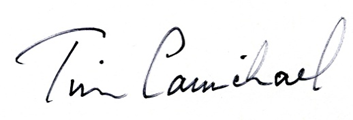 Tim Carmichael